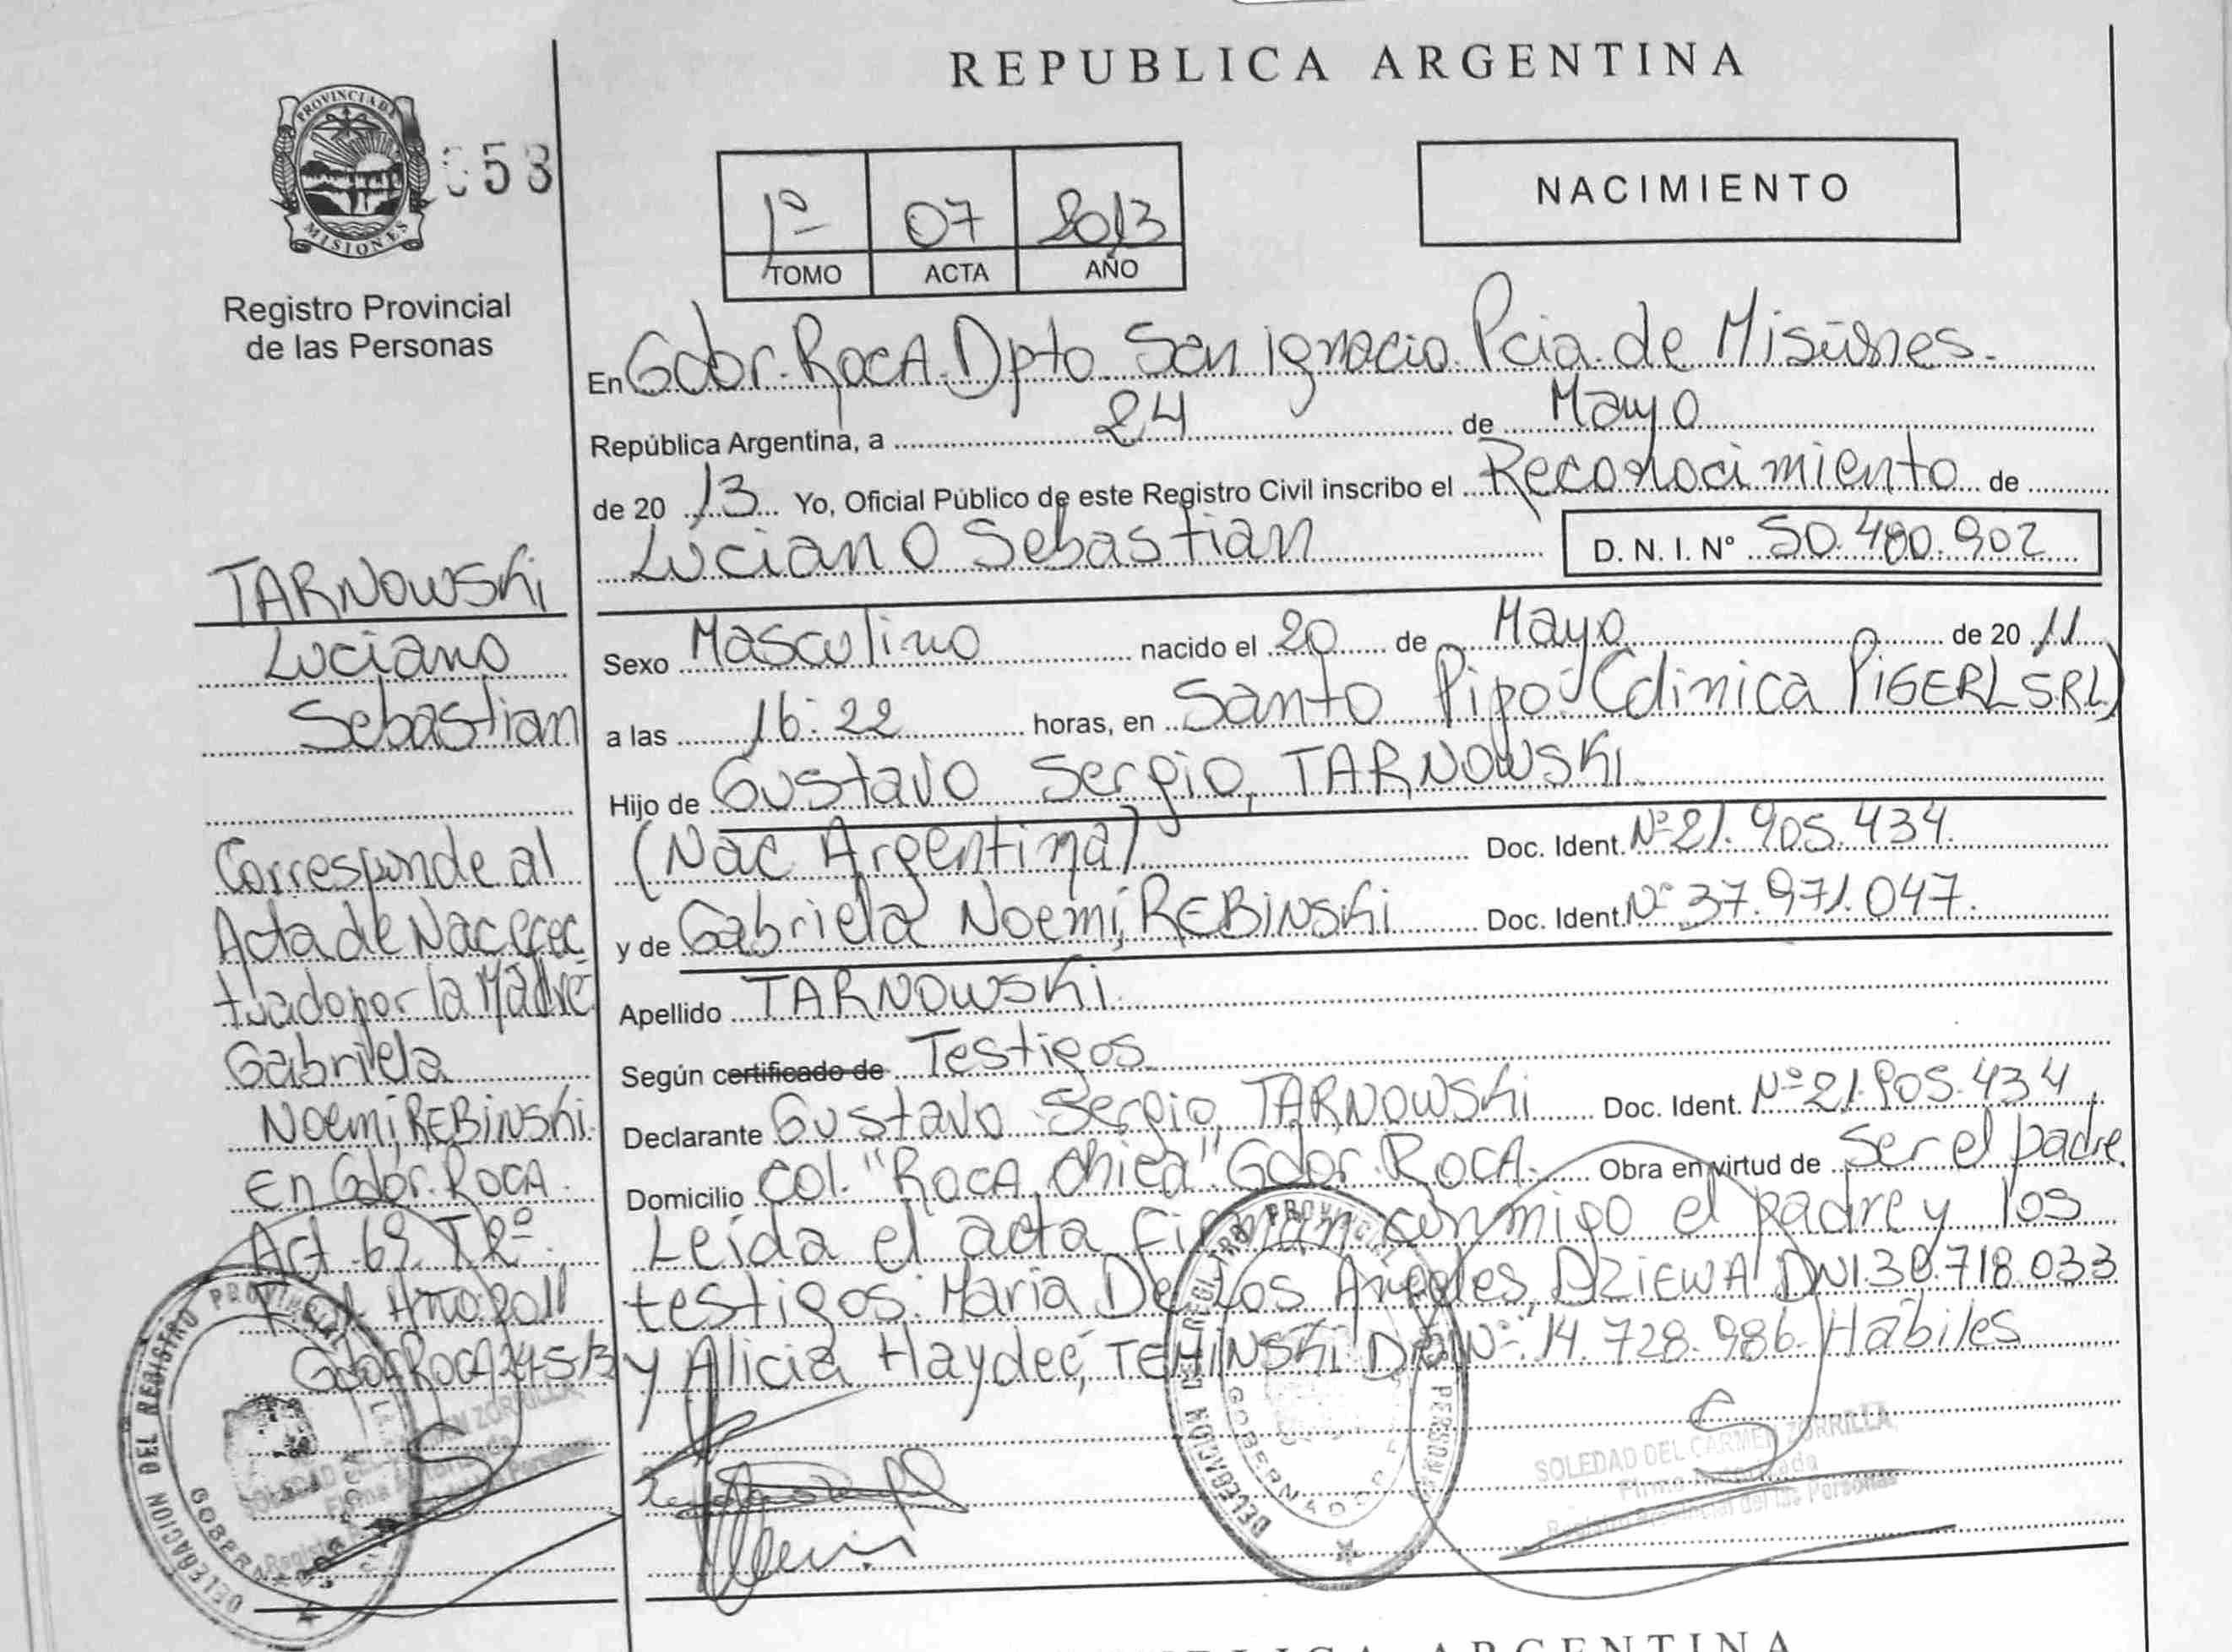 REPUBLICA ARGENTINA
PROVINCIA DE
MISIONES
058
Registro Provincial
de las Personas
1º 07 2013
TOMO ACTA AÑO
NACIMIENTO
En Gdor. Roca. Dpto San Ignacio. Pcia. de Misiones.
República Argentina, a 24 de Mayo
de 20 13 Yo, Oficial Público de este Registro Civil inscribo el Reconocimiento de
Luciano Sebastian D. N. I. Nº 50.480.902
Sexo Masculino nacido el 20 de Mayo de 20 11
a las 16:22 horas, en Santo Pipó (Clinica PIGERL S.R.L)
Hijo de Gustavo Sergio, TARNOWSKI
(Nac Argentina) Doc. Ident. Nº 21.905.434.
y de Gabriela Noemí, REBINSKI Doc. Ident. Nº 37.971.047.
Apellido TARNOWSKI.
Según certificado de Testigos.
Declarante Gustavo Sergio, TARNOWSKI Doc. Ident. Nº 21.905.434
Domicilio Col. "Roca Chica" Gdor. Roca. Obra en virtud de Ser el padre.
Leída el acta firman conmigo el padre y los
testigos: Maria De Los Angeles, DZIEWA DNI 30.718.033
y Alicia Haydeé, TEMINSKI DNI Nº 14.728.986. Habiles
TARNOWSKI
Luciano
Sebastian
Corresponde al
Acta de Nac efec
tuado por la Madre
Gabriela
Noemí, REBINSKI
En Gdor. Roca.
Act. 69. T 2º.
Año 2011
Gdor Roca 24-5-13
DELEGACION DEL REGISTRO PROVINCIAL
GOBERNADOR ROCA
DELEGACION DEL REGISTRO PROVINCIAL DE LAS PERSONAS
GOBERNADOR
SOLEDAD DEL CARMEN ZORRILLA
Firma Autorizada
Registro Provincial de las Personas
SOLEDAD DEL CARMEN ZORRILLA
Firma Autorizada
Registro Provincial de las Personas
REPUBLICA ARGENTINA